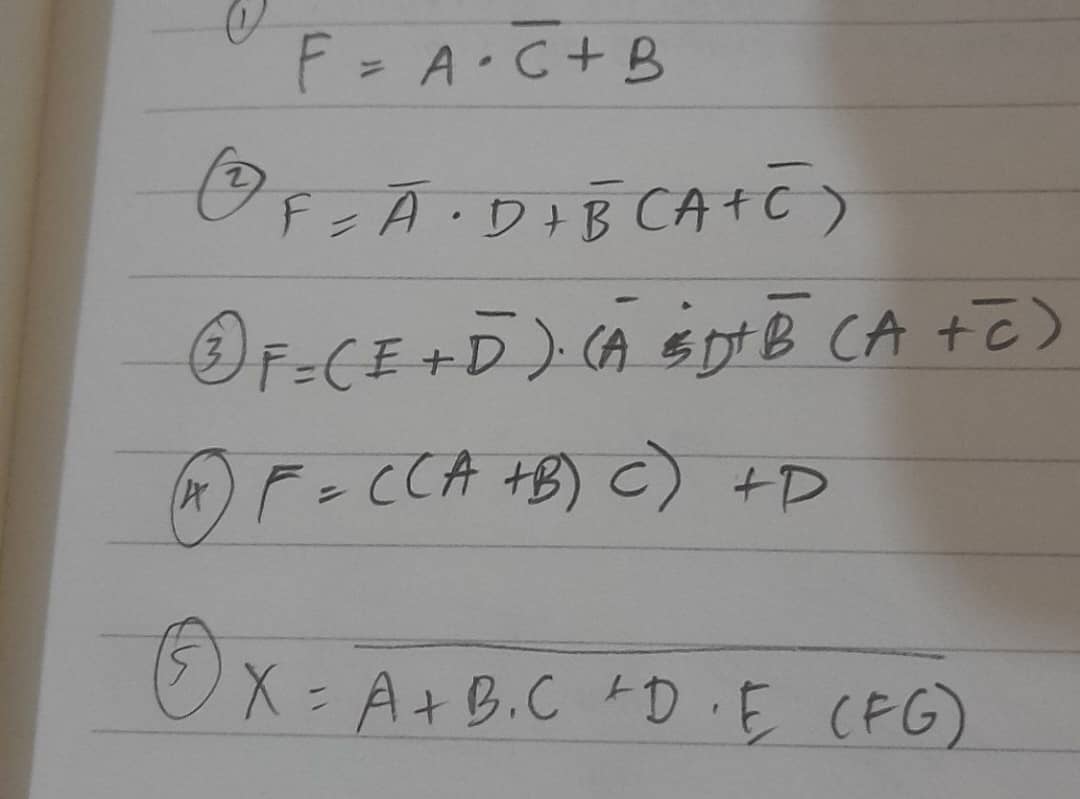 ① F = A · C̅ + B
② F = A̅ · D + B̅ (A + C̅)
③ F = (E + D̅) · (A̅ · D + B̅ (A + C̅)
④ F = ((A + B) C) + D
⑤ X = A̅ ̅+̅ ̅B̅.̅C̅ ̅+̅ ̅D̅ ̅·̅ ̅E̅ ̅(̅F̅G̅)̅